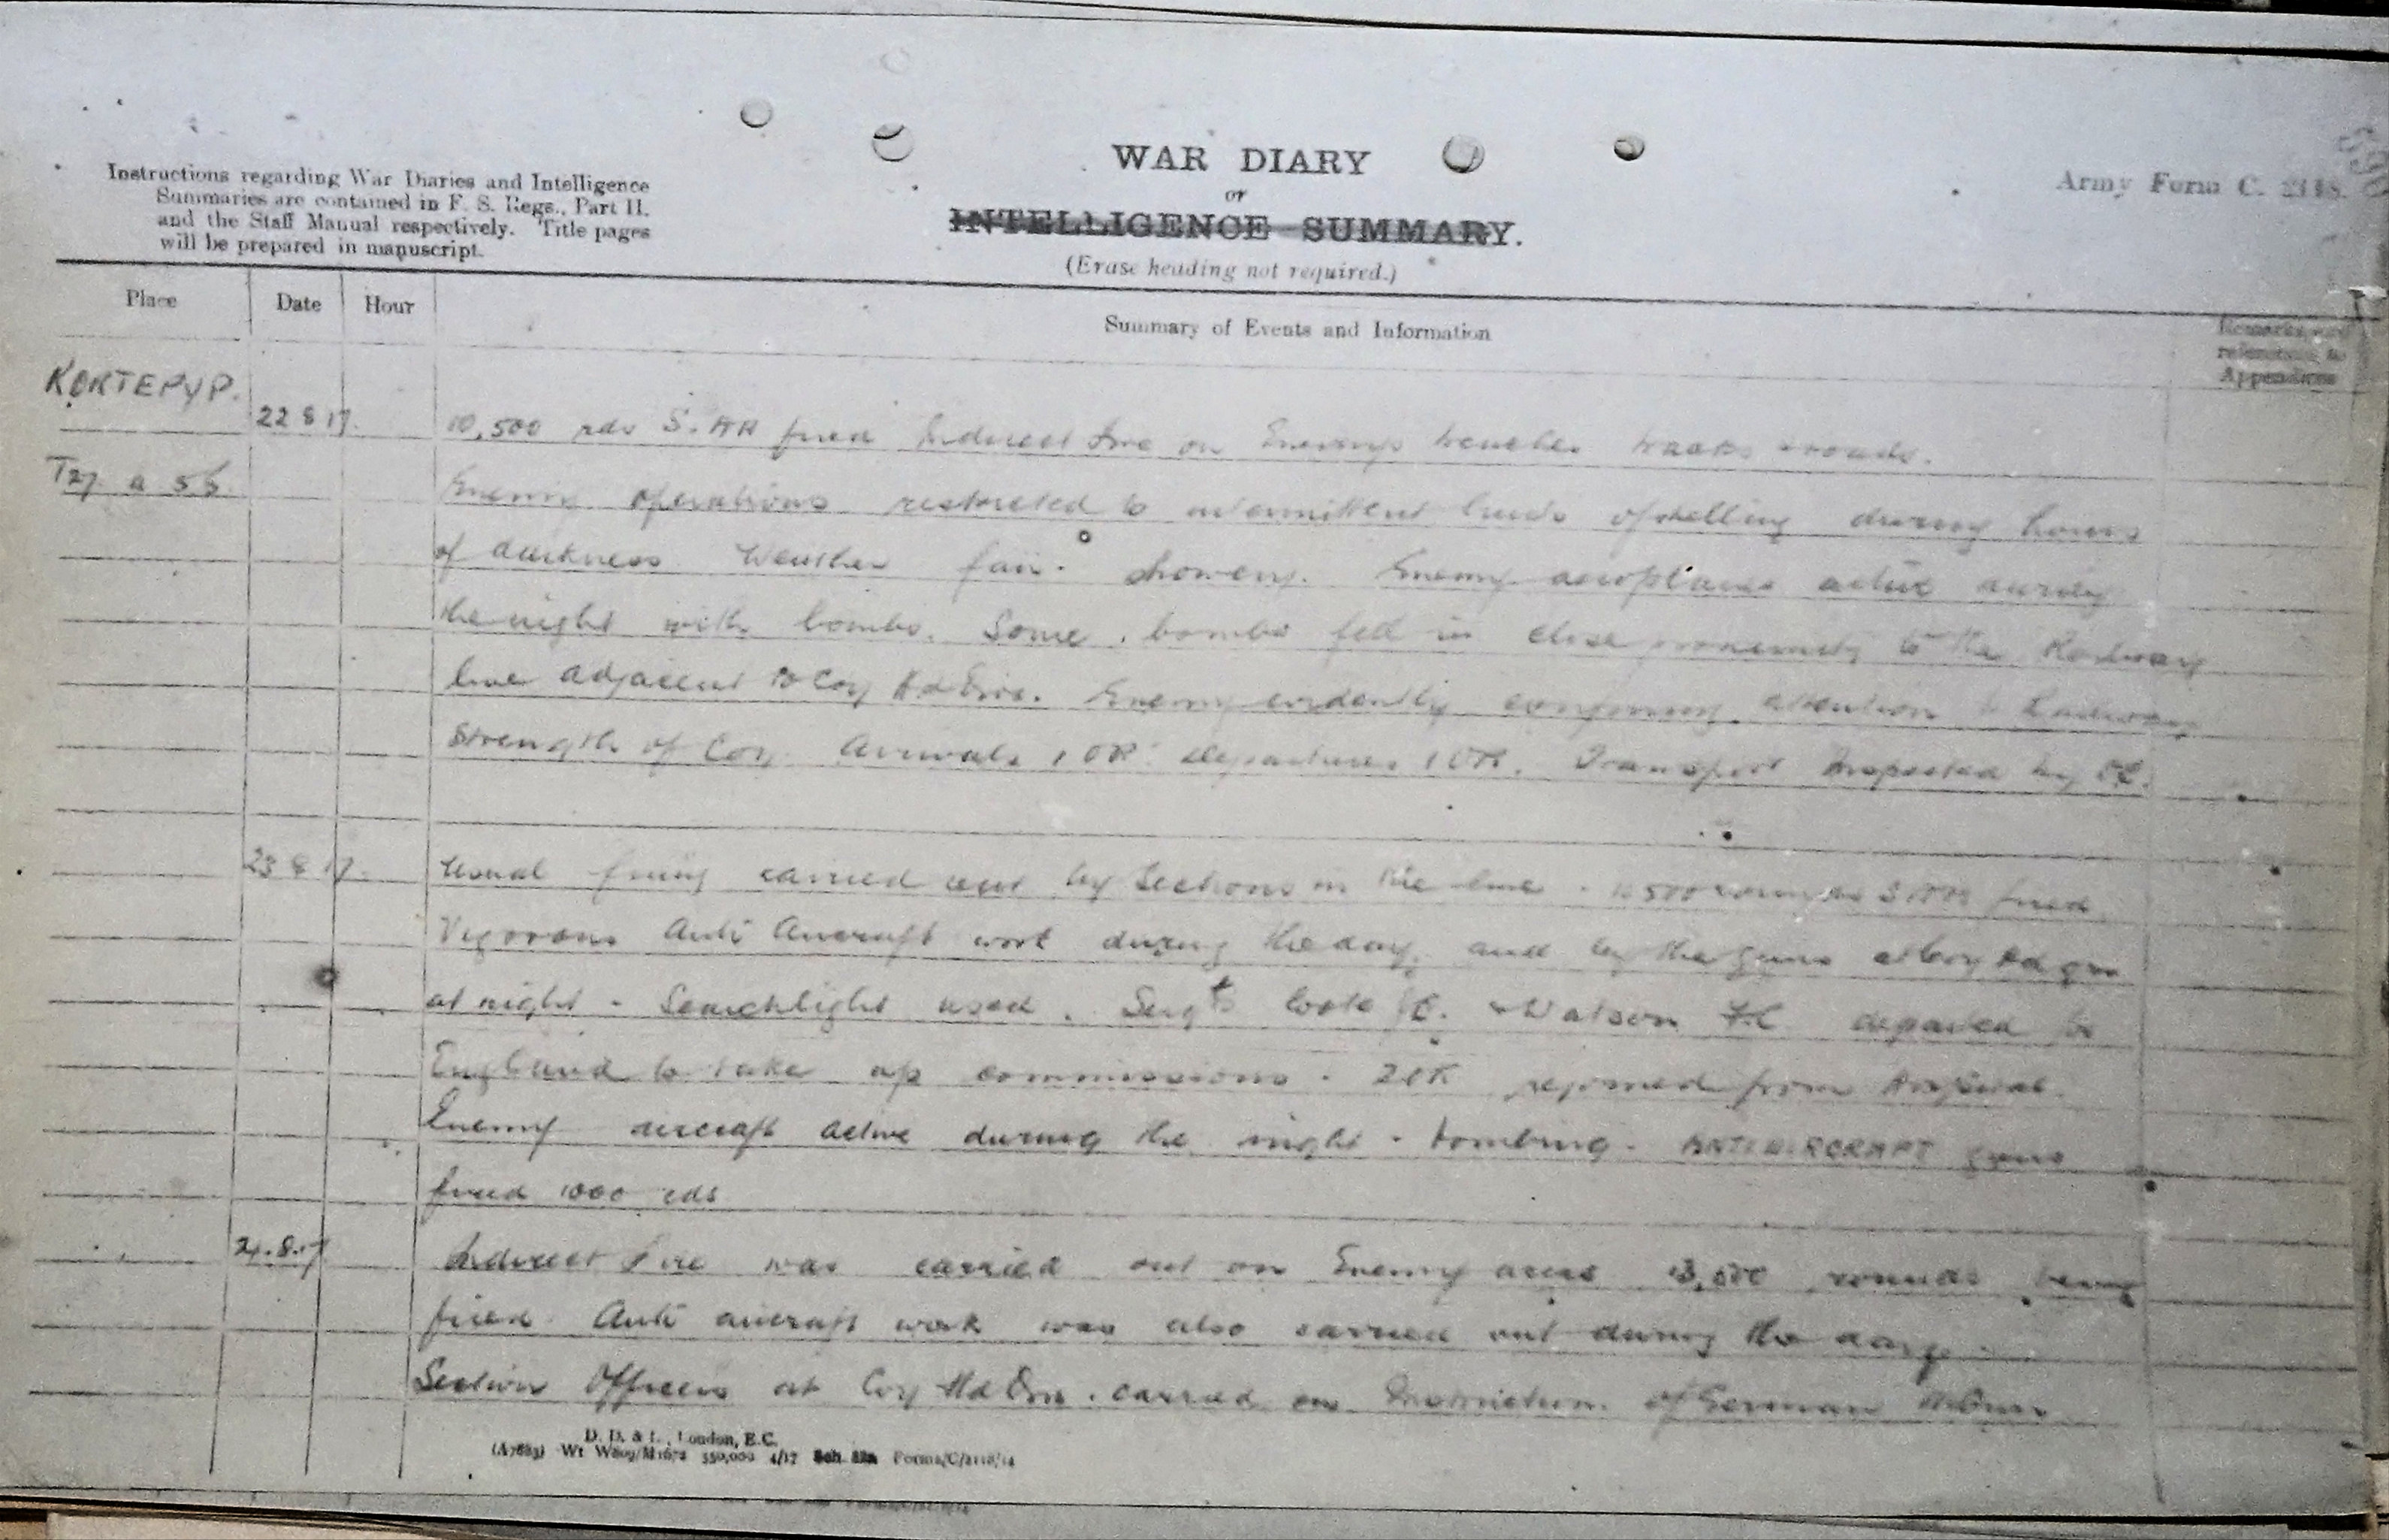 WAR DIARY
or
INTELLIGENCE SUMMARY.
(Erase heading not required.)
Army Form C. 2118.
Instructions regarding War Diaries and Intelligence
Summaries are contained in F. S. Regs., Part II.
and the Staff Manual respectively. Title pages
will be prepared in manuscript.
Place Date Hour Summary of Events and Information Remarks and
references to
Appendices
KORTEPYP.
22 8 17. 10,500 rds S.AA fired Indirect fire on Enemys trenches tracks & roads.
T27. a 5 5. Enemy operations restricted to intermittent of shelling during hours
of darkness Weather fair. showery. Enemy aeroplanes active during
the night with bombs. Some bombs fell in close proximity to the Railway
line adjacent to Coy Hd Qrs. Enemy evidently confining attention to Railway
Strength of Coy. Arrivals 1 OR. departures 1 OR. Transport Inspected by OC.
23 8 17. Usual firing carried out by Sections in the line. rounds SAA fired
Vigorous Anti Aircraft work during the day. and by the guns at Coy Hd Qrs
at night - Searchlight used. Sergts & Watson F.C departed for
England to take up commissions. 2 OR rejoined from Hospital.
Enemy aircraft active during the night - bombing. ANTI AIRCRAFT guns
fired 1000 rds
24.8.17 Indirect Fire was carried out on Enemy areas rounds being
fired. Anti aircraft work was also carried out during the day.
Section Officers at Coy Hd Qrs. carried on Instruction of German
D. D. & L., London, E.C.
(A7883) Wt W809/M1672 350,000 4/17 Sch. 52a Forms/C/2118/14